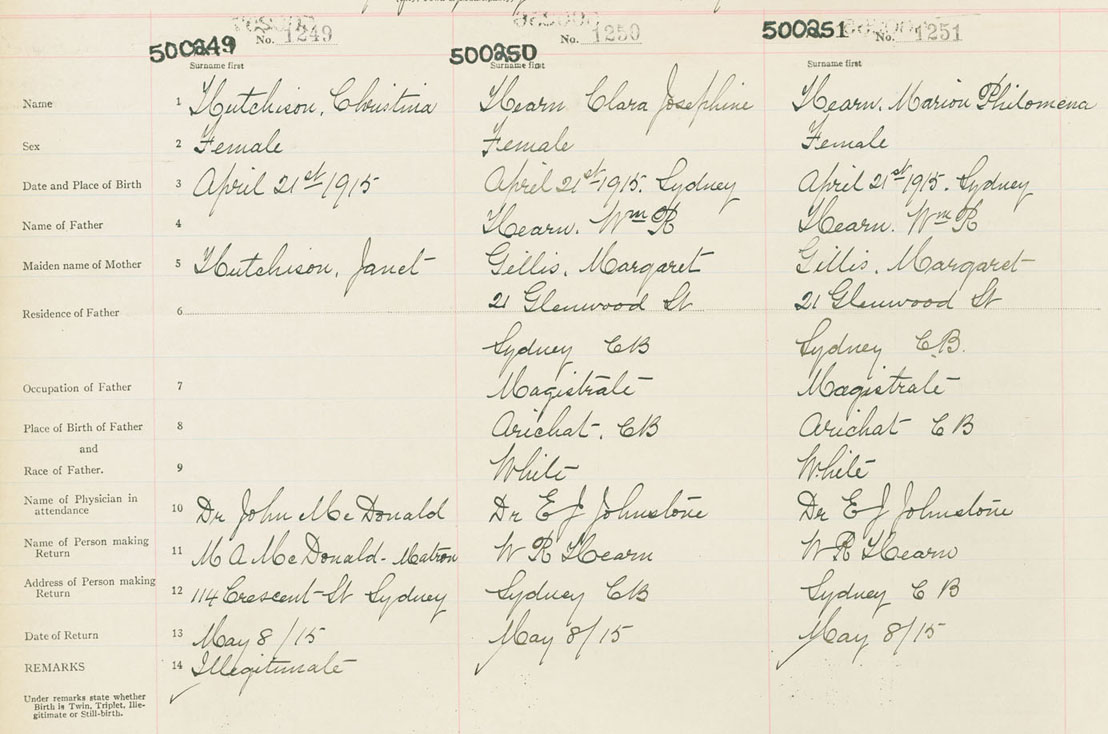 500249 No. 1249 500250 No. 1250 500251 No. 1251
Surname first Surname first Surname first
Name 1 Hutchison, Christina Hearn Clara Josephine Hearn. Marion Philomena
Sex 2 Female Female Female
Date and Place of Birth 3 April 21st 1915 April 21st 1915. Sydney April 21st 1915. Sydney
Name of Father 4 Hearn. Wm R Hearn. Wm R
Maiden name of Mother 5 Hutchison, Janet Gillis, Margaret Gillis, Margaret
Residence of Father 6 21 Glenwood St 21 Glenwood St
Sydney CB Sydney C.B.
Occupation of Father 7 Magistrate Magistrate
Place of Birth of Father 8 Arichat. CB Arichat C B
and
Race of Father. 9 White White
Name of Physician in attendance 10 Dr John McDonald Dr E J Johnstone Dr E J Johnstone
Name of Person making Return 11 M A McDonald - Matron W R Hearn W R Hearn
Address of Person making Return 12 114 Crescent St Sydney Sydney CB Sydney C B
Date of Return 13 May 8/15 May 8/15 May 8/15
REMARKS 14 Illegitimate
Under remarks state whether
Birth is Twin, Triplet, Ille-
gitimate or Still-birth.